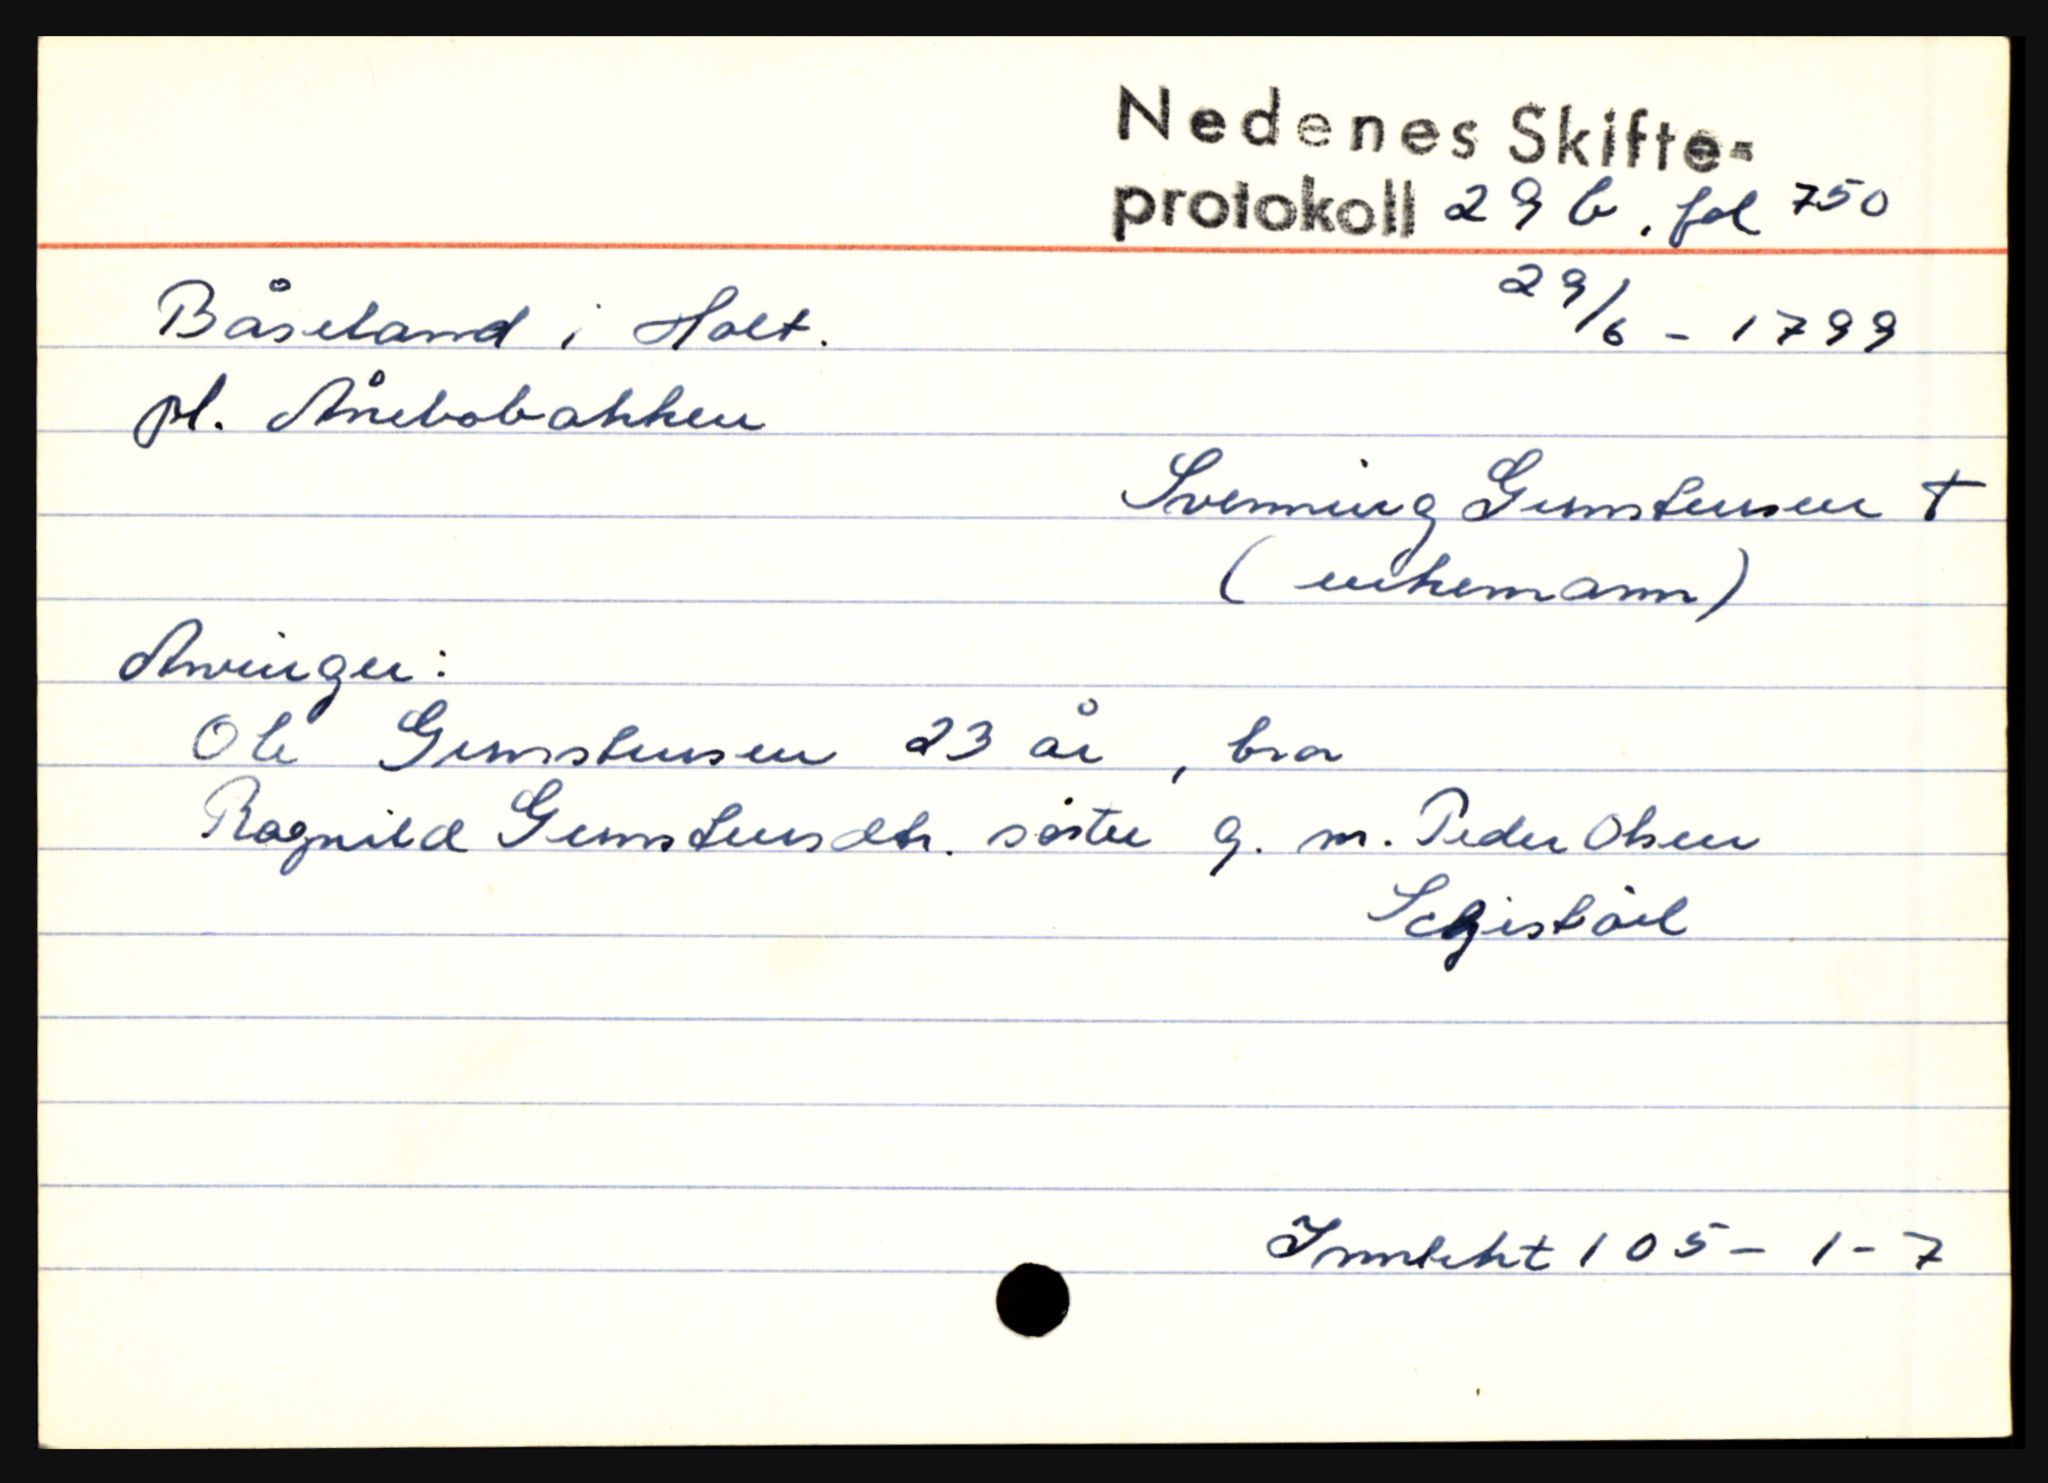 Nedenes Skifte-
protokoll 29 b, fol 750
29/6 - 1799
Båseland i Holt.
pl. Åmebobakken
Svenning Gunstensen †
(enkemann)
Arvinger:
Ole Gunstensen 23 år, bror
Ragnild Gunstensdtr. søster g. m. Peder Olsen
Inntekt 105 - 1 - 7